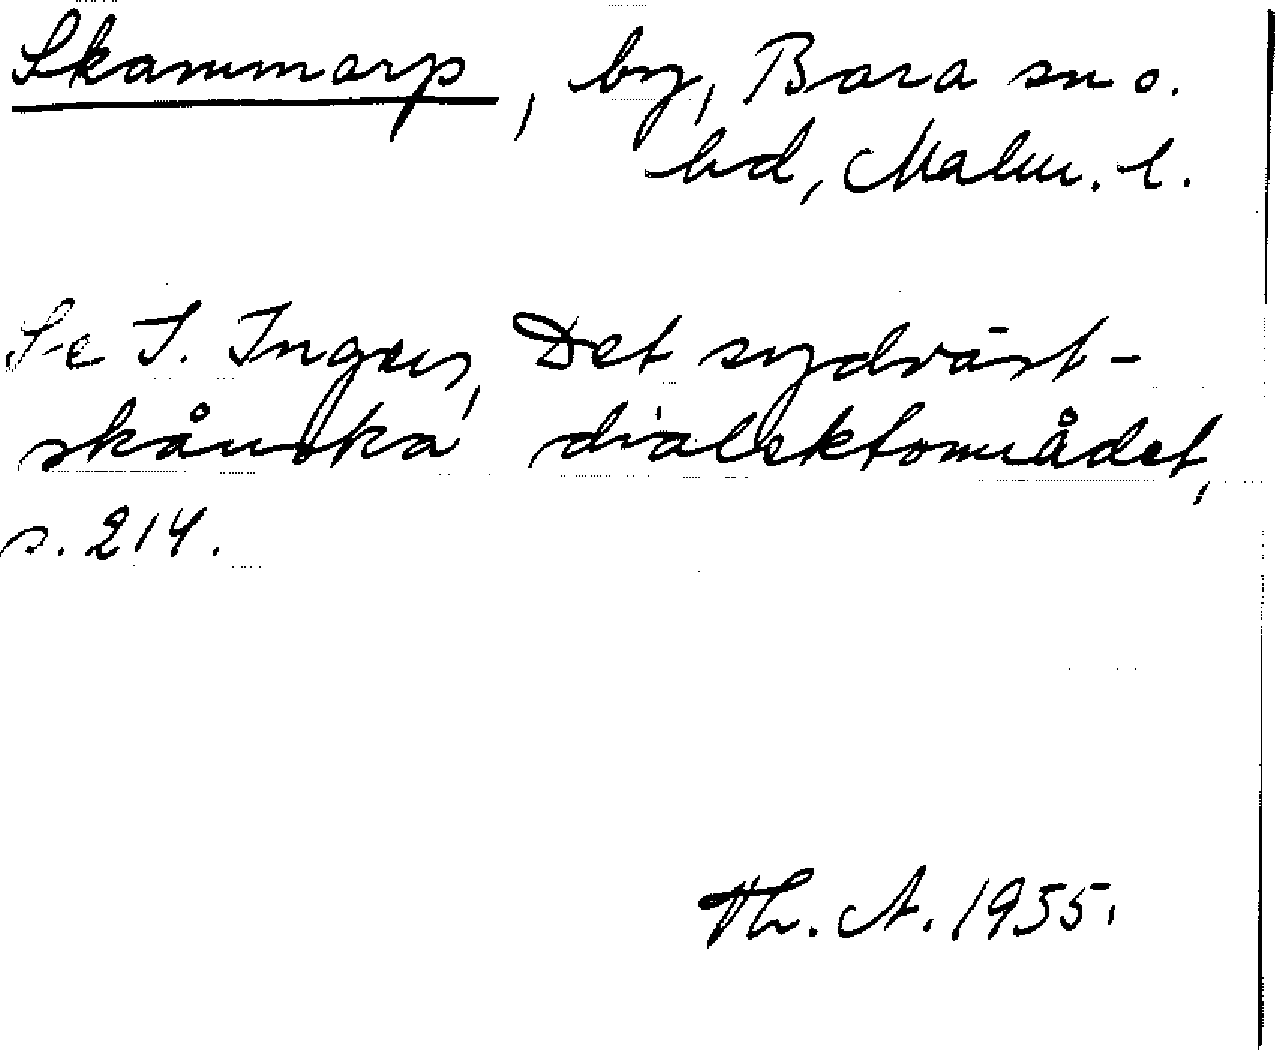 Skammarp, by, Bara sn o.
hd, Malm. l.
Se I. Ingers, Det sydväst-
skånska dialektområdet,
s. 214.
Th. A. 1955.